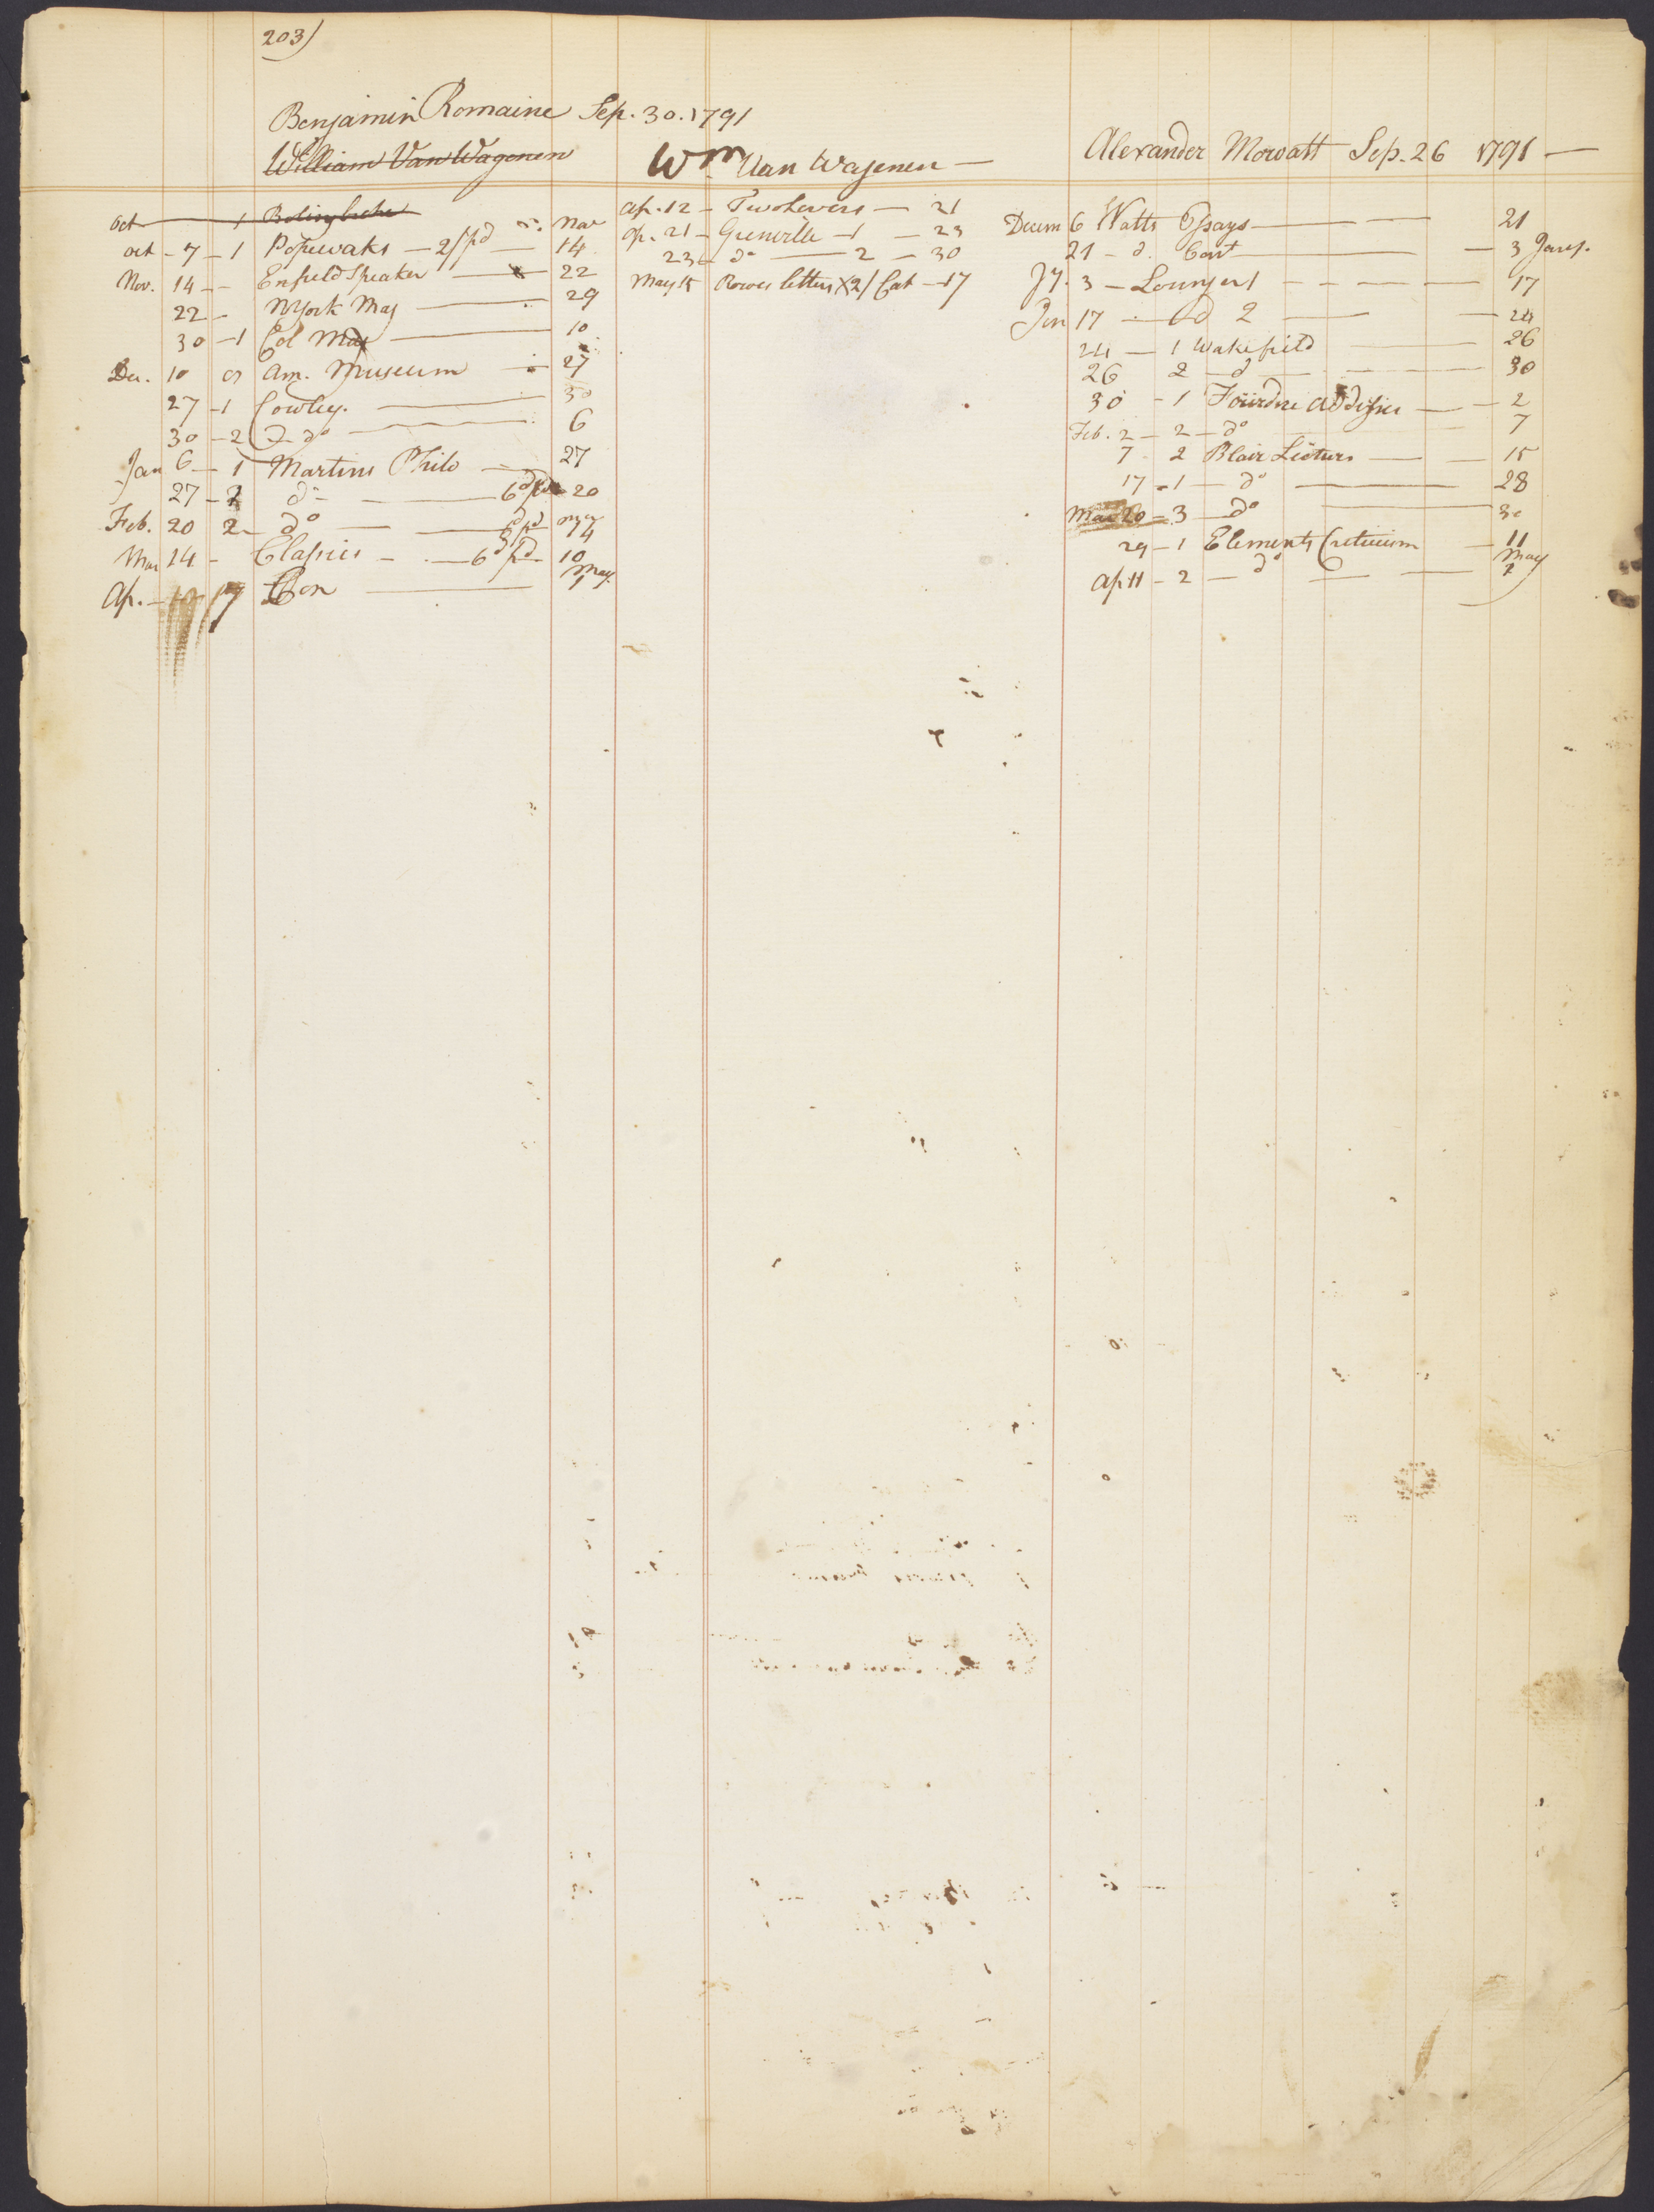 203)
Benjamin Romaine Sep. 30. 1791
William Van Wagenen
oct 1 Bolingbroke
oct - 7 - 1 Popewaks - 2/pd Nov 14
Nov. 14 - - Enfield Speaker 22
22 - NYork Mag 29
30 - 1 Col Mag 10
Dec. 10 Am. Museum 27
27 - 1 Cowley. 30
30 - 2 do 6
Jan 6 - 1 Martins Philo 27
27 - 2 do 6d 20
Feb. 20 2 do pd 14
Mar 14 - Classics - 6d pd 10
Ap. - 17 May
Wm Van Wagenen
Ap. 12 - Two Lovers - 21
Ap. 21 - Grenville - 1 - 23
23 - do 2 - 30
May 15 Rowes letters X 2/ Cat - 17
Alexander Mowatt Sep. 26 1791
Decem 6 Watts Essays 21
21 - d. Cont 3 Jany.
Jy. 3 - Lounger 1 17
Jan 17 - d 2 24
24 - 1 Wakefield 26
26 2 - d 30
30 - 1 2
Feb. 2 - 2 - do 7
7 - 2 Blair Lectures 15
17 - 1 - do 28
Mar 20 - 3 - do 30
29 - 1 Elements Criticism 11
Ap 11 - 2 - do May